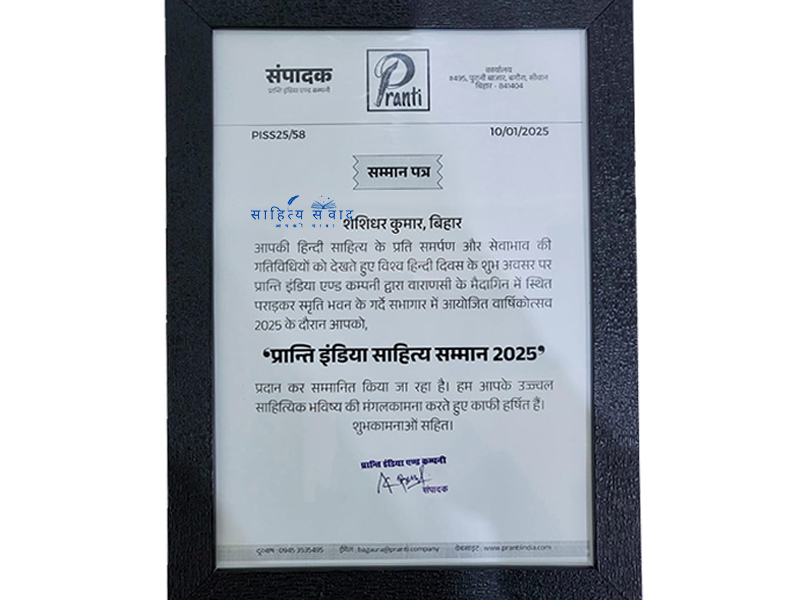 संपादक
प्रान्ति इंडिया एण्ड कम्पनी
Pranti
कार्यालय
#495, पुरानी बाजार, बगौरा, सीवान
बिहार - 841404
PISS25/58
10/01/2025
सम्मान पत्र
साहित्य संवाद
शशिधर कुमार, बिहार
आपकी हिन्दी साहित्य के प्रति समर्पण और सेवाभाव की
गतिविधियों को देखते हुए विश्व हिन्दी दिवस के शुभ अवसर पर
प्रान्ति इंडिया एण्ड कम्पनी द्वारा वाराणसी के मैदागिन में स्थित
पराड़कर स्मृति भवन के गर्दे सभागार में आयोजित वार्षिकोत्सव
2025 के दौरान आपको,
‘प्रान्ति इंडिया साहित्य सम्मान 2025’
प्रदान कर सम्मानित किया जा रहा है। हम आपके उज्ज्वल
साहित्यिक भविष्य की मंगलकामना करते हुए काफी हर्षित हैं।
शुभकामनाओं सहित।
प्रान्ति इंडिया एण्ड कम्पनी
संपादक
दूरभाष : 0945 3535495 ईमेल : bagaura@pranti.company वेबसाइट : www.prantiindia.com